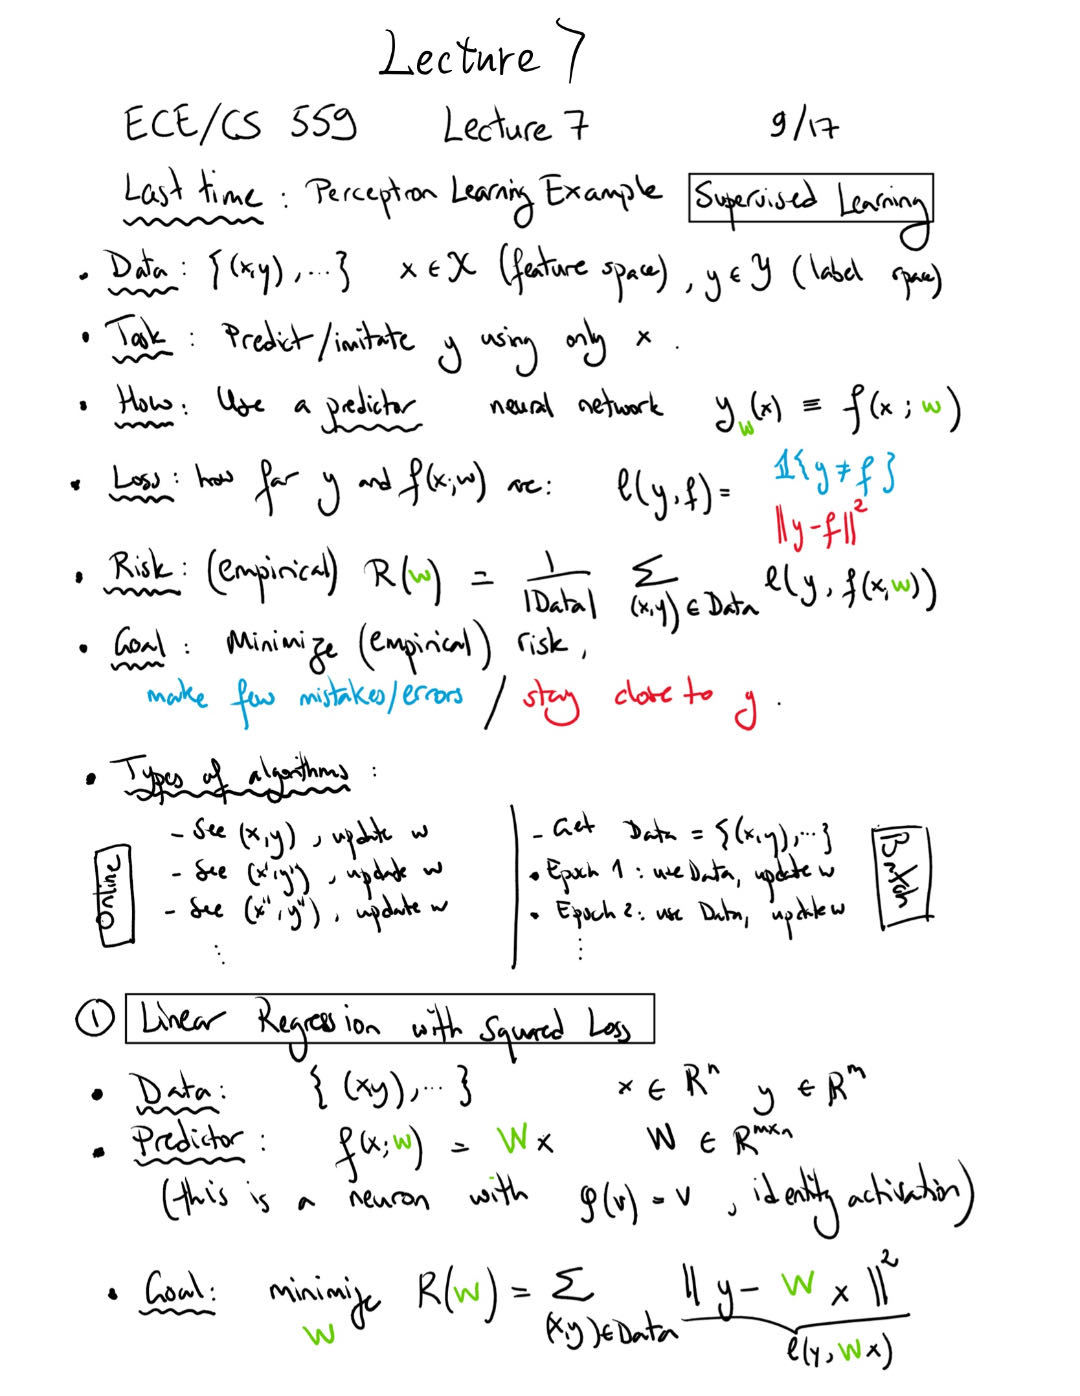 Lecture 7
ECE/CS 559 Lecture 7 9/17
Last time : Perceptron Learning Example Supervised Learning
• Data : {(x,y), ...} x ∈ X (feature space), y ∈ Y (label space)
• Task : Predict/imitate y using only x .
• How : Use a predictor neural network y_w(x) ≡ f(x ; w)
• Loss : how far y and f(x;w) are: ℓ(y,f) = 𝟙{y ≠ f}
‖y-f‖²
• Risk : (empirical) R(w) = 1/|Data| Σ_{(x,y) ∈ Data} ℓ(y, f(x,w))
• Goal : Minimize (empirical) risk,
make few mistakes/errors / stay close to y .
• Types of algorithms :
Online
- See (x,y), update w
- See (x',y'), update w
- See (x'',y''), update w
⋮
- Get Data = {(x,y), ...}
• Epoch 1 : use Data, update w
• Epoch 2 : use Data, update w
⋮
Batch
① Linear Regression with Squared Loss
• Data : { (xy), ... } x ∈ R^n y ∈ R^m
• Predictor : f(x;w) = W x W ∈ R^{m×n}
(this is a neuron with φ(v) = v , identity activation)
• Goal : minimize_W R(w) = Σ_{(x,y) ∈ Data} ‖ y - W x ‖²
ℓ(y, Wx)